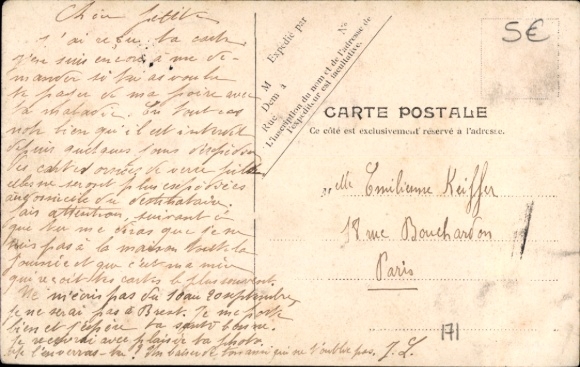 Chère petite
j'ai reçu ta carte
j'en suis encore à me de-
mander si tu as voulu
te payer de ma poire avec
ta maladie. En tout cas
note bien qu'il est interdit
depuis quelques jours d'expédier
des cartes ornées de verre pilé
elles ne seront plus expédiées
au domicile du destinataire.
Fais attention, suivant ce
que tu me diras que je ne
suis pas à la maison toute la
journée et que c'est ma mère
qui reçoit les cartes le plus souvent.
Ne m'écris pas du 10 au 20 septembre
je ne serai pas à Brest. Je me porte
bien et j'espère ta santé bonne.
Je recevrai avec plaisir ta photo.
l'enverras-tu ? Un baiser de ton ami qui ne t'oublie pas. J. L.
Expédié par
M
Dem à
Rue
No
L'inscription du nom et de l'adresse de
l'expéditeur est facultative.
5€
CARTE POSTALE
Ce côté est exclusivement réservé à l'adresse.
Melle Emilienne Keiffer
18 rue Bouchardon
Paris
171